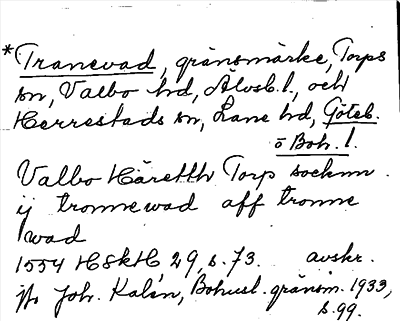 *Tranevad, gränsmärke, Torps
sn, Valbo hd, Älvsb. l., och
Herrestads sn, Lane hd, Göteb.
o Boh. l.
Valbo Häretth Torp socknn.
ij tronnewad aff tronne
wad
1554 HSkH, 29, s. 73. avskr.
Jfr Joh. Kalén, Bohusl. gränsm. 1933,
s. 99.